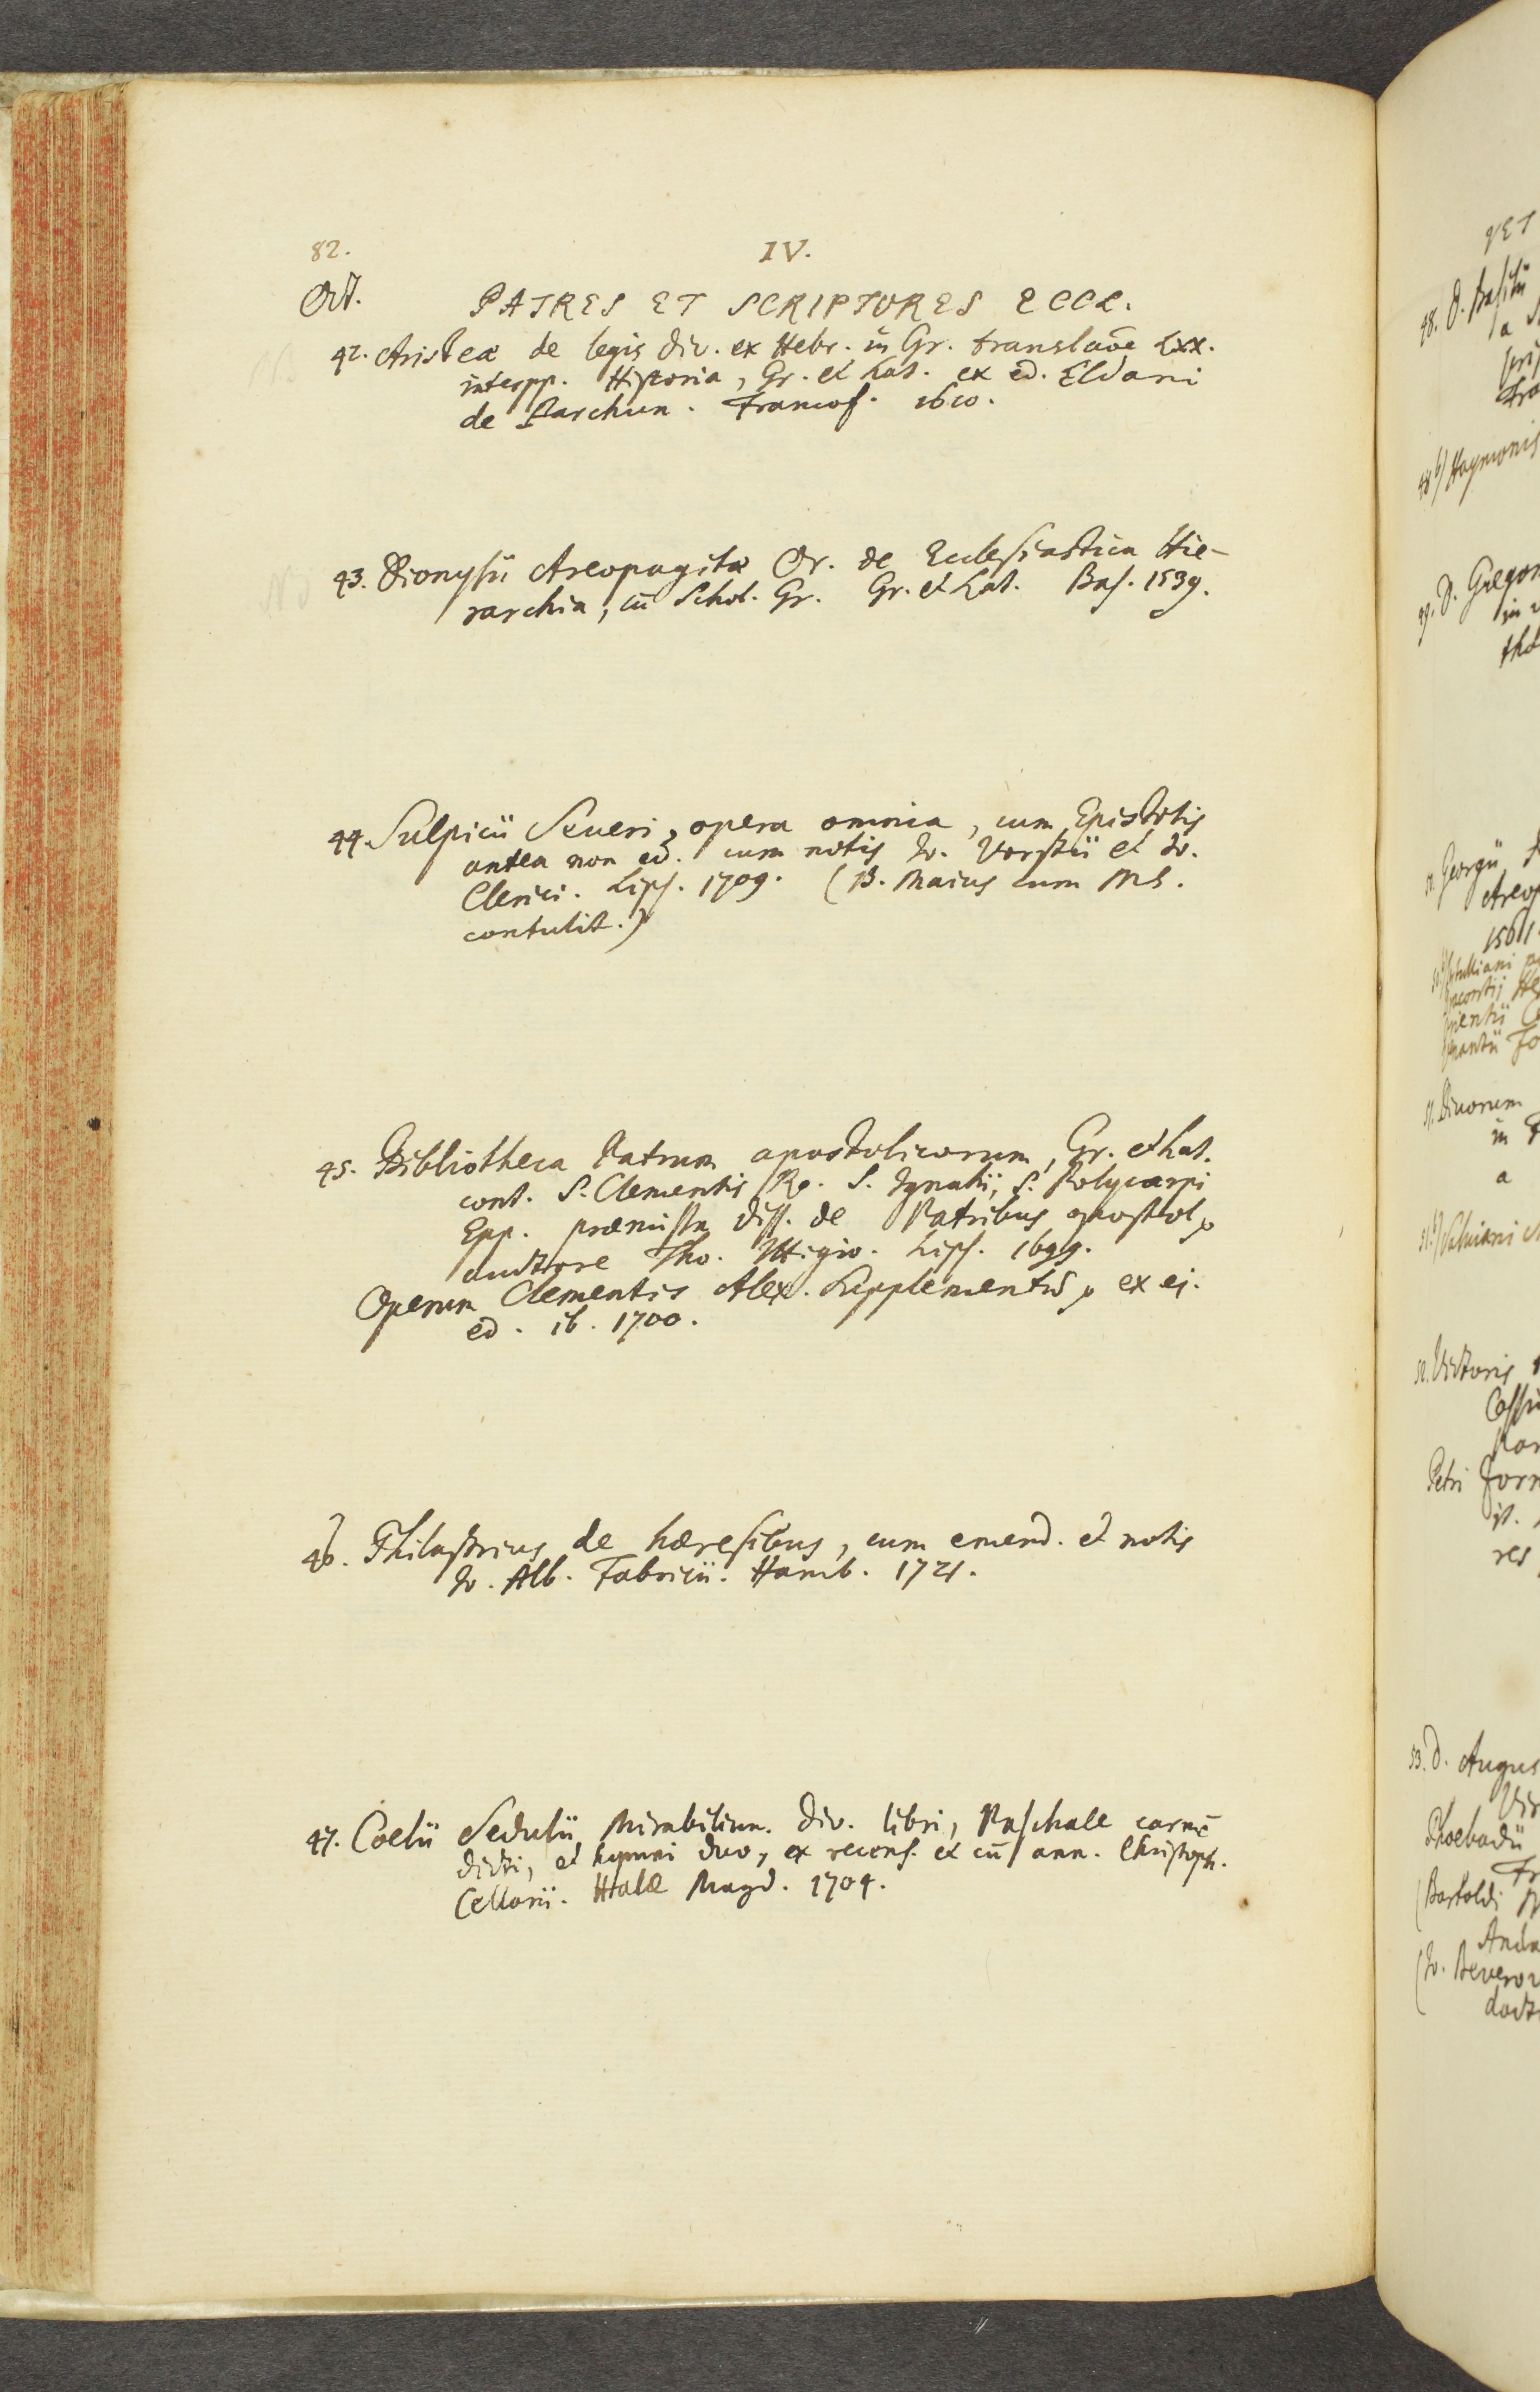 82.
IV.
Oct.
PATRES ET SCRIPTORES ECCL.
42. Aristeæ de legis div. ex Hebr. in Gr. translaõe LXX.
interpp. Historia, Gr. et Lat. ex ed. Eldani
de Parchun. Francof. 1610.
43. Dionysii Areopagitæ Or. de Ecclesiastica Hie-
rarchia, cū Schol. Gr. Gr. et Lat. Bas. 1539.
44. Sulpicii Severi, opera omnia, cum Epistolis
antea non ed. cum notis Jo. Vorstii et Jo.
Clerici. Lips. 1709. (B. Maius cum MS.
contulit.)
45. Bibliotheca Patrum apostolicorum, Gr. et Lat.
cont. S. Clementis Ro. S. Ignatii, S. Polycarpi
Epp. præmissa diss. de Patribus apostol.
auctore Tho. Ittigio. Lips. 1699.
Operum Clementis Alex. Supplementū, ex ej.
ed. ib. 1700.
46. Philastrius de hæresibus, cum emend. et notis
Jo. Alb. Fabricii. Hamb. 1721.
47. Coelii Sedulii Mirabilium div. libri, Paschale carmē
dicti, et hymni duo, ex recens. et cū ann. Christoph.
Cellarii. Halæ Magd. 1704.
48. D. Basilii
a
48 b) Haymonis
49. D. Gregor
in
Georgii
Areop
1561.
Divorum
in
a
Salviani
52. Victoris
Cassi
Petri
res
53. D. Augus
Phoebadii
Fr
(Bartoldi
(Jo. Beverov
doct